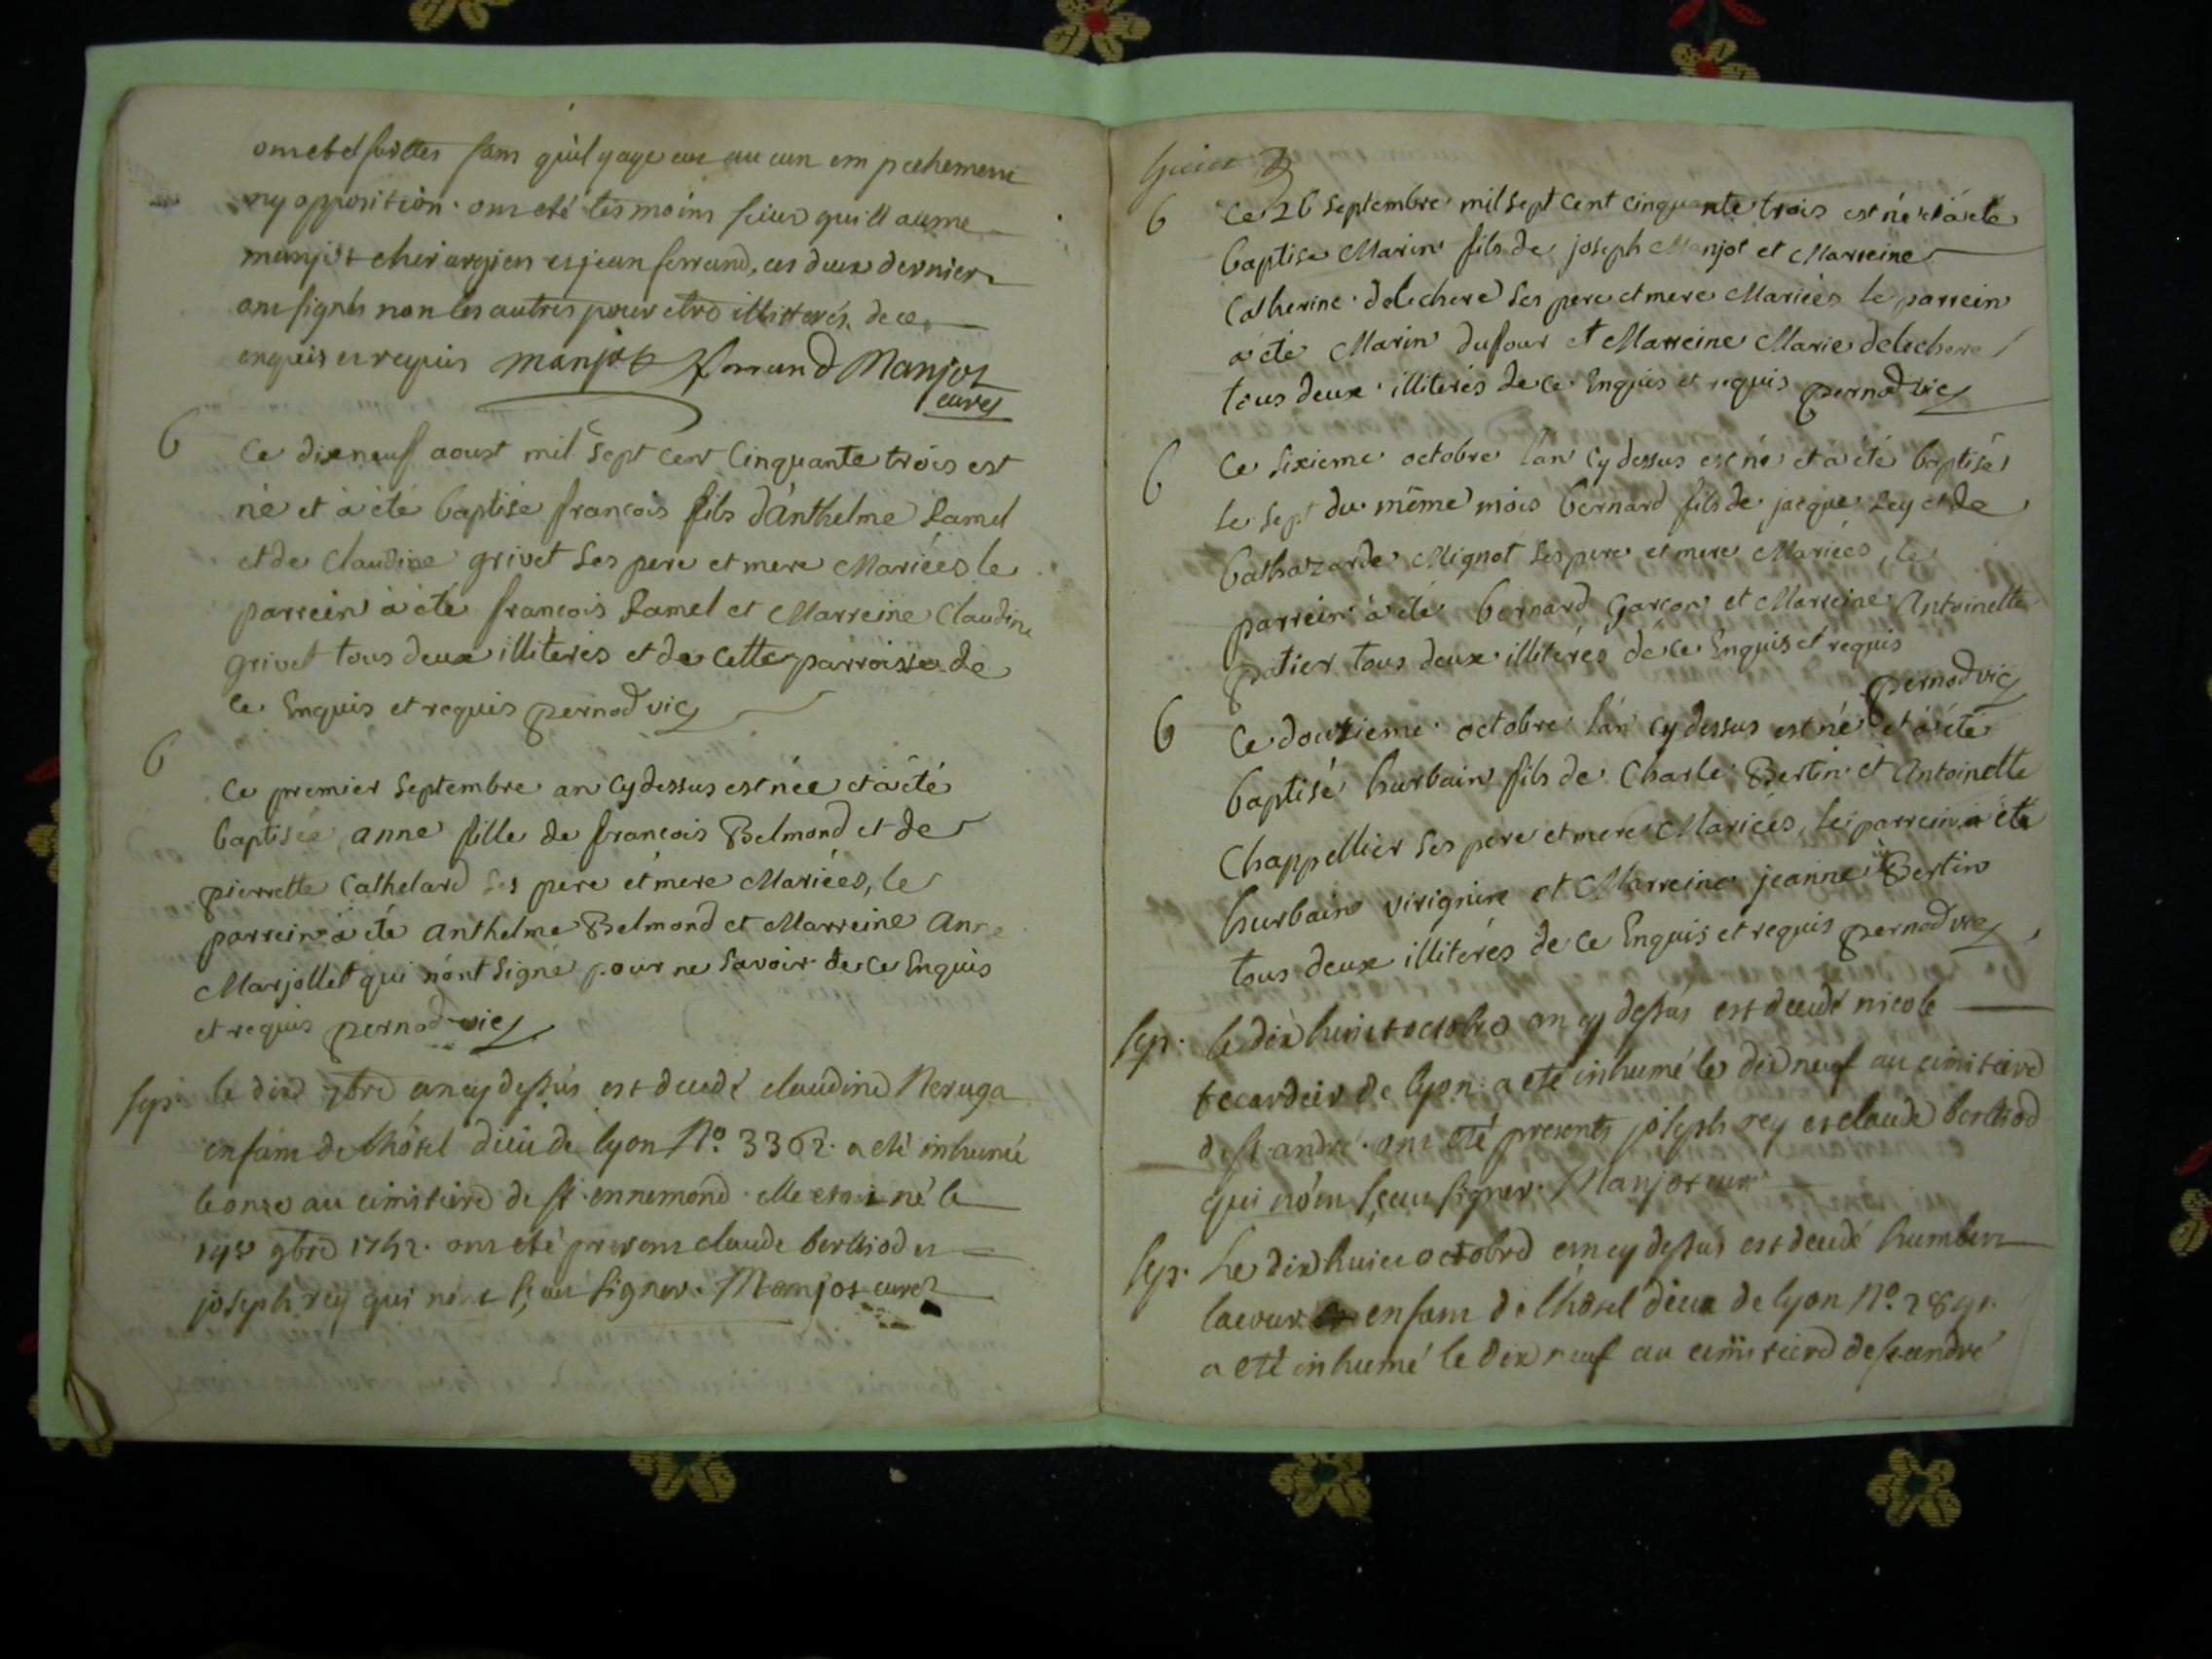 ont eté faittes sans quil y aye eut aucun empechement
ny opposition. ont eté tesmoins sieur guillaume
manjot chirurgien et jean ferrand, ces deux derniers
ont signés non les autres pour etre illitterés de ce
enquis et requis manjot ferrand Manjot
curez
6 Ce dixneuf aoust mil sept cent Cinquante trois est
né et à été baptisé francois fils d'Anthelme Ramel
et de Claudine grivet Ses pere et mere Mariées le
parrein à été francois Ramel et Marreine Claudine
grivet tous deux illiterés et de cette parroisse de
ce Enquis et requis pernod vic
6 Ce premier Septembre an Cydessus est née et à été
baptisée anne fille de francois Belmond et de
pierrette Cathelard Ses pere et mere Mariées, le
parrein à été Anthelme Belmond et Marreine Anne
Marjollet qui n'ont Signé pour ne Savoir de ce Enquis
et requis pernod vic
Sep. le dix 7bre an cy dessus est decedé claudine Neruga
enfant de l'hôtel dieu de lyon No. 3362. a eté inhumée
le onze au cimitiere de st. ennemond. elle etoit né le
9bre 1742. ont eté present claude berthiod et
joseph rey qui n'ont sçeu signer. Manjot curez
6 Ce 26 Septembre mil Sept Cent Cinquante trois est né et à été
baptisé Marin fils de joseph Manjot et Marreine
Catherine delechere Ses pere et mere Mariées le parrein
à été Marin dufour et Marreine Marie delechere
tous deux illiterés de ce Enquis et requis pernod vic
6 Ce Sixieme octobre l'an Cy dessus est né et à été baptisé
le Sept du même mois bernard fils de jacque Rey et de
bathazarde Mignot Ses pere et mere Mariées, le
parrein à été bernard Garçon et Marreine Antoinette
patier tous deux illiterés de ce Enquis et requis
pernod vic
6 Ce douzieme octobre l'an Cy dessus est né et à été
baptisé hurbain fils de Charle Bertin et Antoinette
Chappellier Ses pere et mere Mariées, le parrein à été
hurbain virignine et Marreine jeanne Bertin
tous deux illiterés de ce Enquis et requis pernod vic
Sep. le dix huict octobre an cy dessus est decedé nicole
de lyon. a eté inhumé le dixneuf au cimitiere
de st andré. ont eté presents joseph rey et claude berthiod
qui n'ont sçeu signer. Manjot curé
Sep. Le dix huict octobre an cy dessus est decedé humbert
enfant de l'hôtel dieu de lyon No.
a eté inhumé le dix neuf au cimitiere de st andré